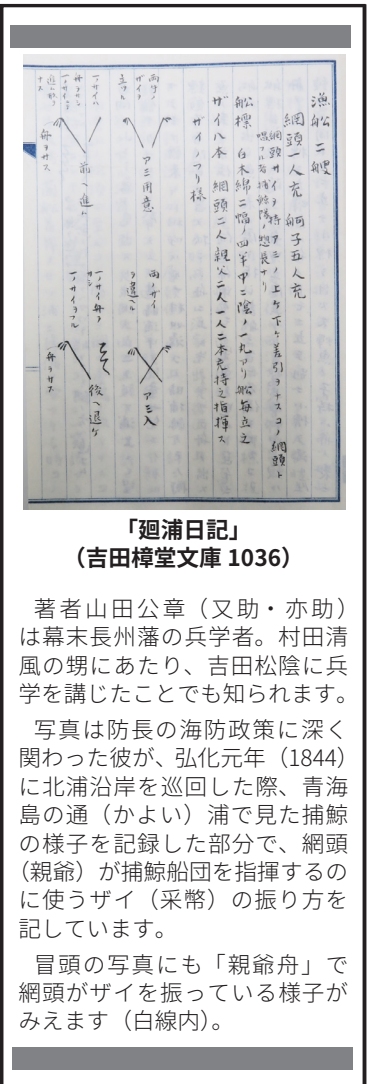 漁船二艘
網頭一人充 舸子五人充
網頭サイヲ持アミノ上ケ下ケ差引ヲナスコノ網頭ト
船標 白木綿二幅ノ四半中ニ陰ノ一丸アリ船毎立之
ザイ八本 網頭二人親父二人一人二本充持之指揮ス
ザイノフリ様
アミ用意
前ヘ進ム
舟ヲサス
アミ入
後ヘ退ク
舟ヲサス
「廻浦日記」
（吉田樟堂文庫 1036）
著者山田公章（又助・亦助）
は幕末長州藩の兵学者。村田清
風の甥にあたり、吉田松陰に兵
学を講じたことでも知られます。
写真は防長の海防政策に深く
関わった彼が、弘化元年（1844）
に北浦沿岸を巡回した際、青海
島の通（かよい）浦で見た捕鯨
の様子を記録した部分で、網頭
（親爺）が捕鯨船団を指揮するの
に使うザイ（采幣）の振り方を
記しています。
冒頭の写真にも「親爺舟」で
網頭がザイを振っている様子が
みえます（白線内）。